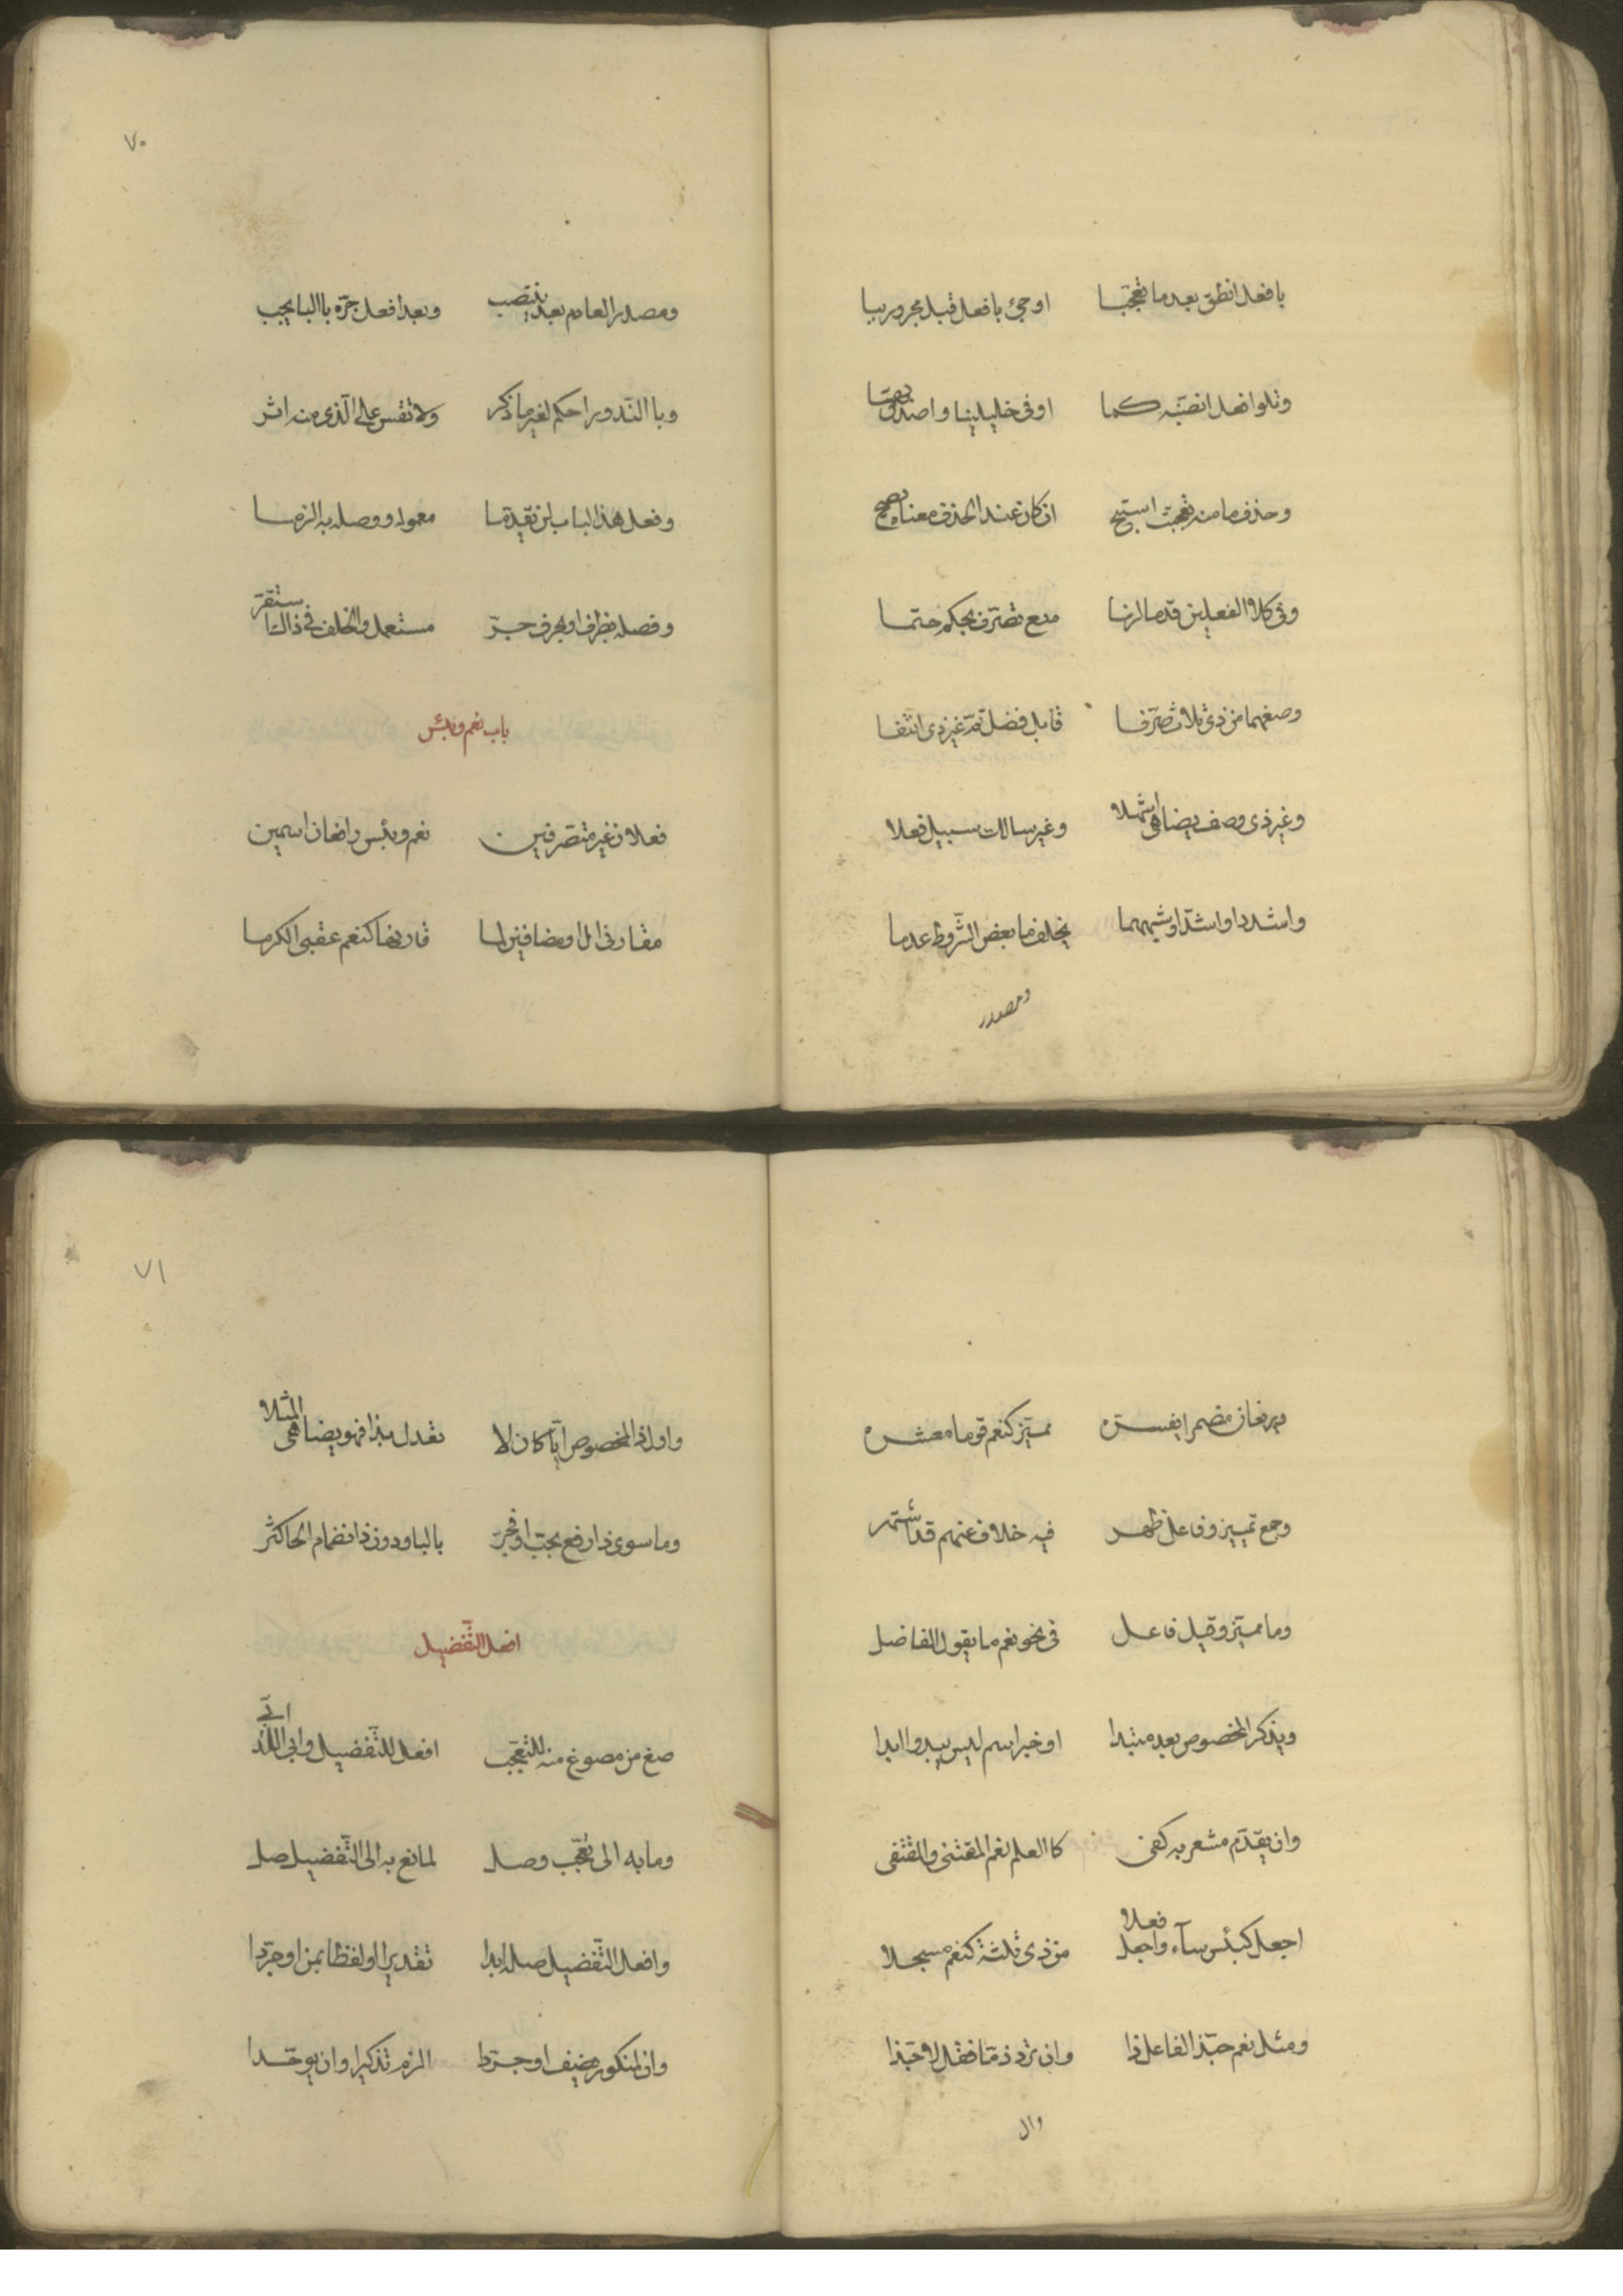 بافعل انطق بعد ما تعجبا    اوجئ بافعل قبل مجرور ببا
وتلو افعل انصبنه كما    اوفى خليلينا واصدق بهما
وحذف ما منه تعجبت استبح    ان كان عند الحذف معناه يصح
وفى كلا الفعلين قدما لزما    منع تصرف بحكم حتما
وصغهما من ذى ثلاث صرفا    قابل فضل تم غير ذى انتفا
وغير ذى وصف يضاهى اشهلا    وغير سالك سبيل فعلا
واشدد او اشد او شبههما    يخلف ما بعض الشروط عدما
ومصدر
٧٠
ومصدر العادم بعد ينتصب    وبعد افعل جره باالبا يجب
وباالندور احكم لغير ما ذكر    ولا تقس على الذى منه اثر
وفعل هذا لباب لن تقدما    معموله ووصله به الزما
وفصله بظرف او بحرف جر    مستعمل والخلف فى ذاك استقر
باب نعم وبئس
فعلان غير متصرفين    نعم وبئس رافعان اسمين
مقارنى ال او مضافين لما    قارنها كنعم عقبى الكرما
ويرفعان مضمرا يفسره    مميز كنعم قوما معشره
وجمع تمييز وفاعل ظهر    فيه خلاف عنهم قد اشتهر
وما مميز وقيل فاعل    فى نحو نعم ما يقول الفاضل
ويذكر المخصوص بعد مبتدا    او خبر اسم ليس يبدوا ابدا
وان يقدم مشعر به كفى    كاالعلم نعم المقتنى والمقتفى
اجعل كبئس سآء واجعل فعلا    من ذى ثلثة كنعم مسجلا
ومثل نعم حبذا الفاعل ذا    وان ترد ذما فقل لا حبذا
وال
٧١
واول ذا المخصوص ايا كان لا    تعدل بذا فهو يضاهى المثلا
وما سوى ذا ارفع بحب او فجر    بالبا ودون ذا انضمام الحا كثر
افعل التفضيل
صغ من مصوغ منه للتعجب    افعل للتفضيل وابى اللذ ابى
وما به الى تعجب وصل    لمانع به الى التفضيل صل
وافعل التفضيل صله ابدا    تقديرا او لفظا بمن ان جردا
وان لمنكور يضف او جردا    الزم تذكيرا وان يوحدا